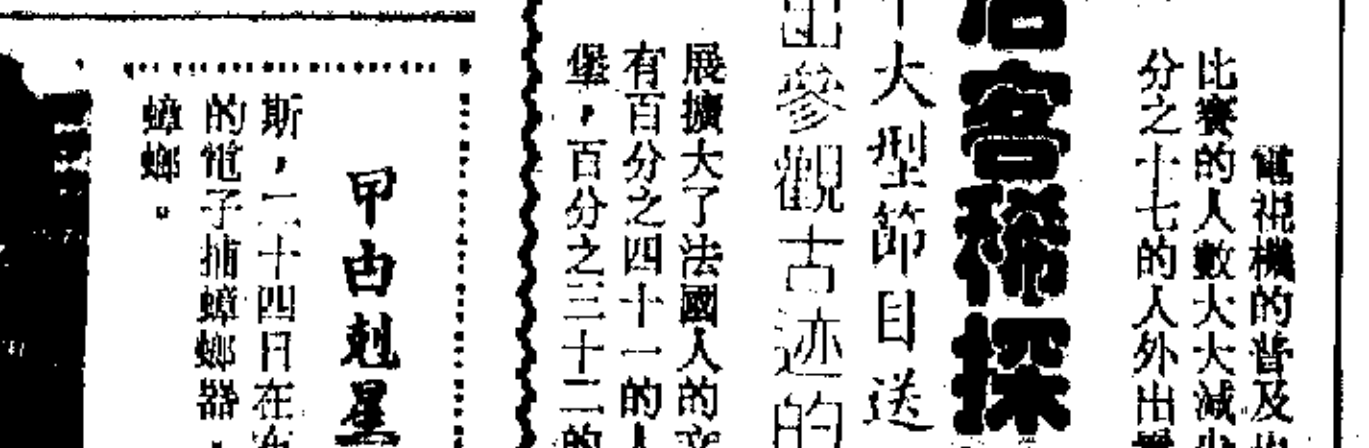 電視機的普及
比賽的人數大大減少
分之十七的人外出
客稀探
大型節目送
出參觀古迹的
展擴大了法國人的文
有百分之四十一的人
堡，百分之三十二的
甲由剋星
斯，二十四日在布
的電子捕蟑螂器，
蟑螂。